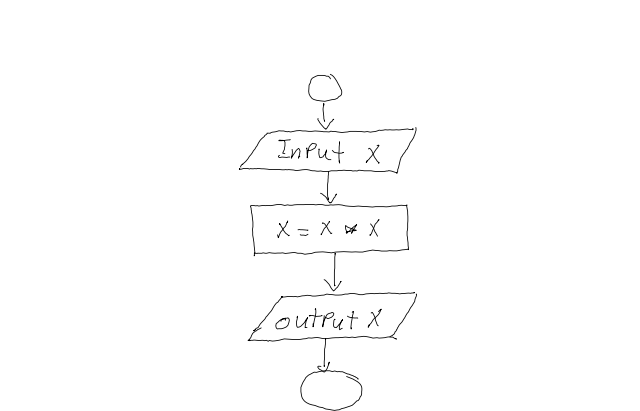 Input X
X = X * X
output X